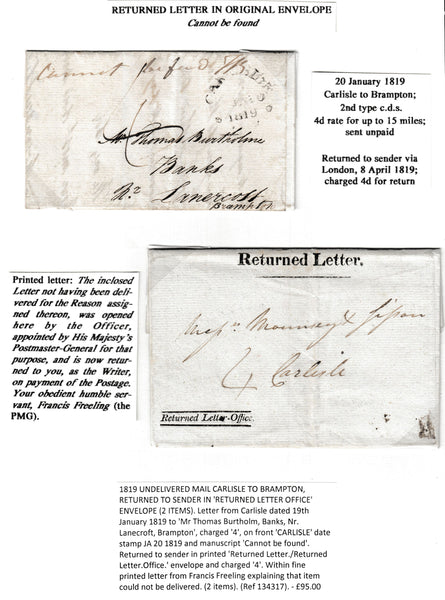 RETURNED LETTER IN ORIGINAL ENVELOPE
Cannot be found
Cannot be found
CARLISLE
1819
20 January 1819
Carlisle to Brampton;
2nd type c.d.s.
4d rate for up to 15 miles;
sent unpaid
Returned to sender via
London, 8 April 1819;
charged 4d for return
Mr Thomas Burtholme
Banks
Nr Lanercost
Brampton
Printed letter: The inclosed
Letter not having been deli-
vered for the Reason assig-
ned thereon, was opened
here by the Officer,
appointed by His Majesty's
Postmaster-General for that
purpose, and is now retur-
ned to you, as the Writer,
on payment of the Postage.
Your obedient humble ser-
vant, Francis Freeling (the
PMG).
Returned Letter.
Messrs Mounsey & Sisson
4 Carlisle
Returned Letter-Office.
1819 UNDELIVERED MAIL CARLISLE TO BRAMPTON,
RETURNED TO SENDER IN 'RETURNED LETTER OFFICE'
ENVELOPE (2 ITEMS). Letter from Carlisle dated 19th
January 1819 to 'Mr Thomas Burtholm, Banks, Nr.
Lanecroft, Brampton', charged '4', on front 'CARLISLE' date
stamp JA 20 1819 and manuscript 'Cannot be found'.
Returned to sender in printed 'Returned Letter./Returned
Letter.Office.' envelope and charged '4'. Within fine
printed letter from Francis Freeling explaining that item
could not be delivered. (2 items). (Ref 134317). - £95.00